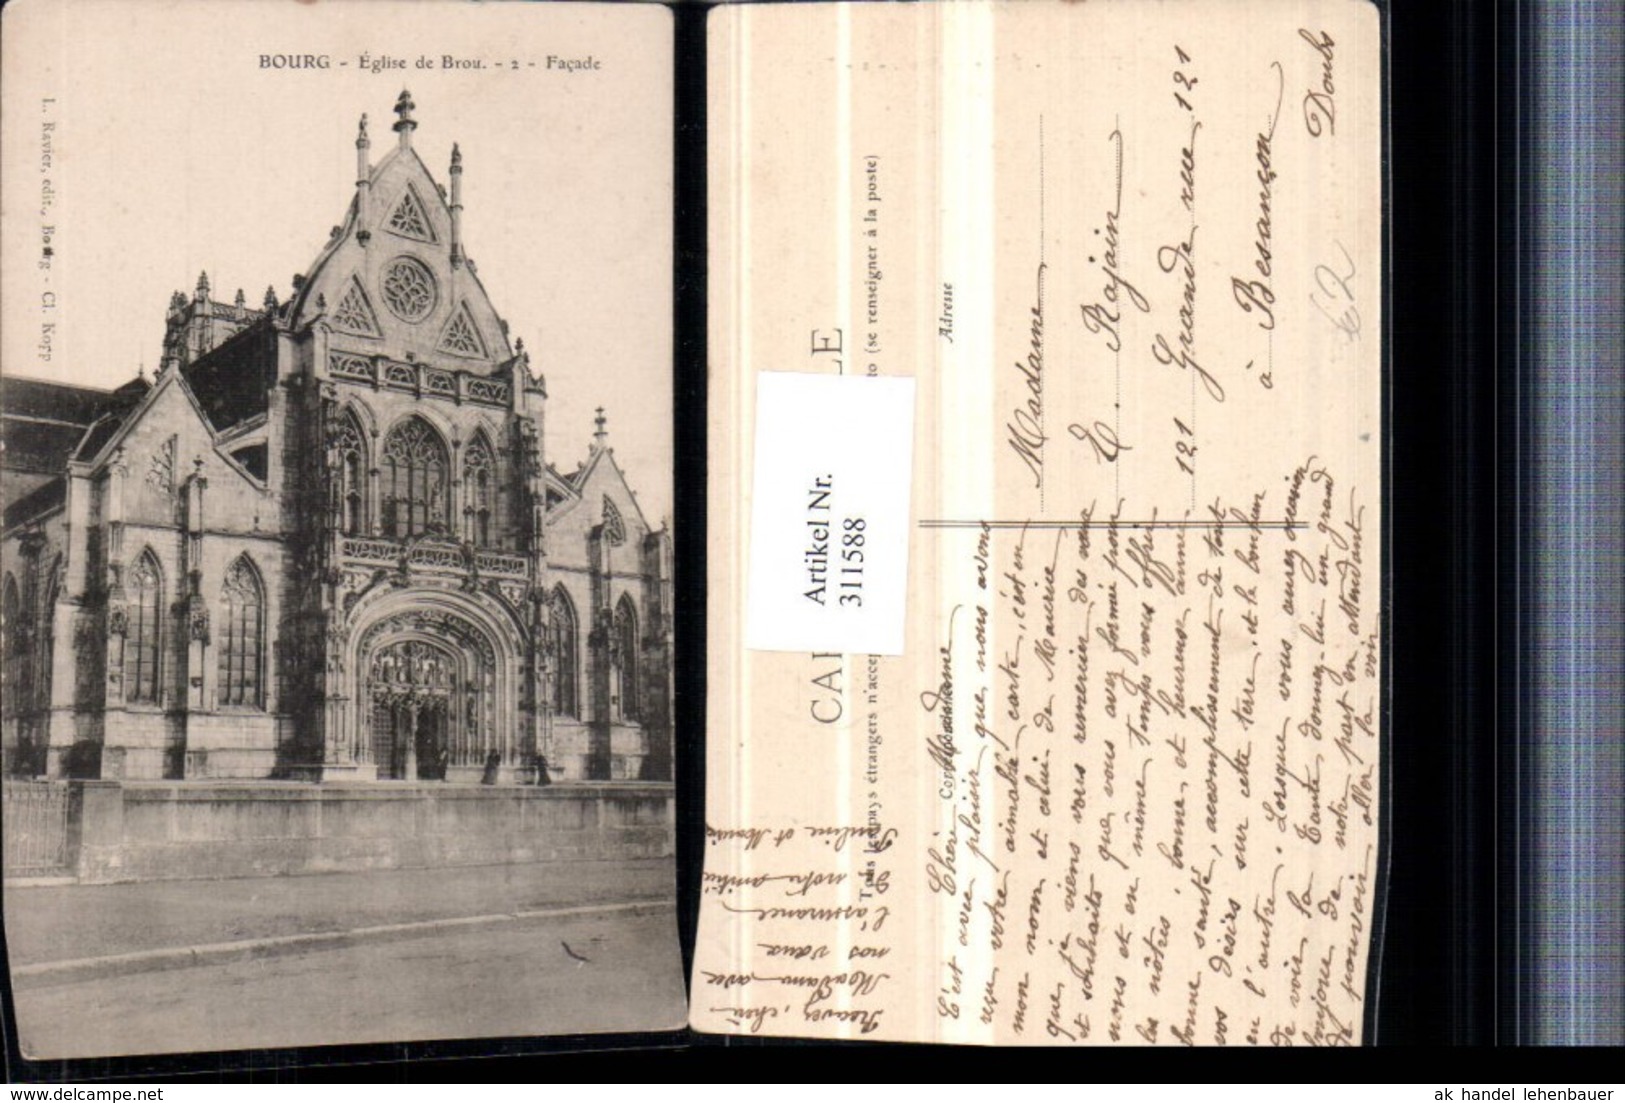 BOURG - Église de Brou. - 2 - Façade
L. Ravier, edit., Bourg - Cl. Kopp
CAR
LE
Tous les pays étrangers n'accep
to (se renseigner à la poste)
Artikel Nr.
311588
Adresse
Madame
E. Rajain
121 Grande rue 121
à Besançon
Doubs
62
Chère Madame
C'est avec plaisir que nous avons
reçu votre aimable carte, c'est en
mon nom et celui de Maurice
que je viens vous remercier des vœux
et souhaits que vous avez formé pour
nous et en même temps vous offrir
les nôtres, bonne et heureuse année
bonne santé, accomplissement de tout
vos désirs sur cette terre et le bonheur
en l'autre. Lorsque vous aurez
de voir la Tante donnez-lui un grand
bonjour de notre part en attendant
de pouvoir aller la voir
Recevez, chère
Madame avec
nos vœux
l'assurance
de notre amitié
Pauline et
ak handel lehenbauer